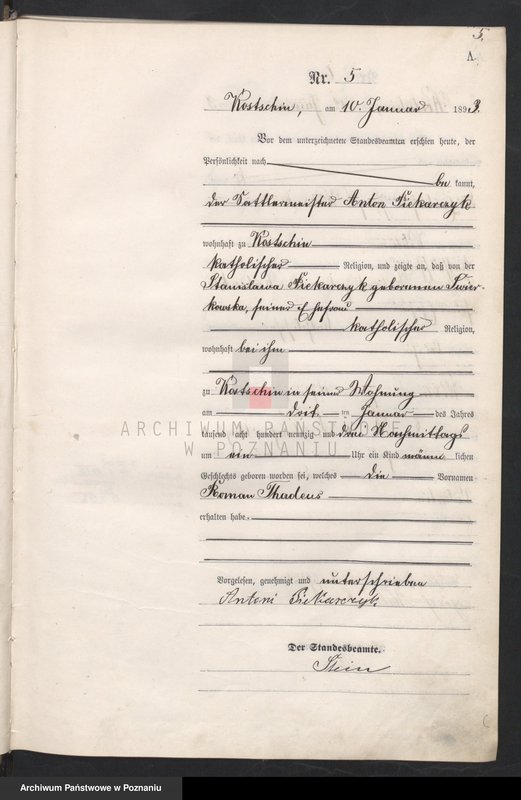 5.
A.
Nr. 5
Kostschin, am 10. Januar 1893.
Vor dem unterzeichneten Standesbeamten erschien heute, der
Persönlichkeit nach
be kannt,
der Sattlermeister Anton Piekarczyk
wohnhaft zu Kostschin
katholischer Religion, und zeigte an, daß von der
Stanislawa Piekarczyk geborenen Swier-
kowska, seiner Ehefrau
katholischer Religion,
wohnhaft bei ihm
zu Kostschin in seiner Wohnung
am drit ten Januar des Jahres
tausend acht hundert neunzig und drei Nachmittags
um ein Uhr ein Kind männ lichen
Geschlechts geboren worden sei, welches die Vornamen
Roman Thadeus
erhalten habe.
Vorgelesen, genehmigt und unterschrieben
Antoni Piekarczyk
Der Standesbeamte.
Stein
ARCHIWUM PAŃSTWOWE
W POZNANIU
Archiwum Państwowe w Poznaniu